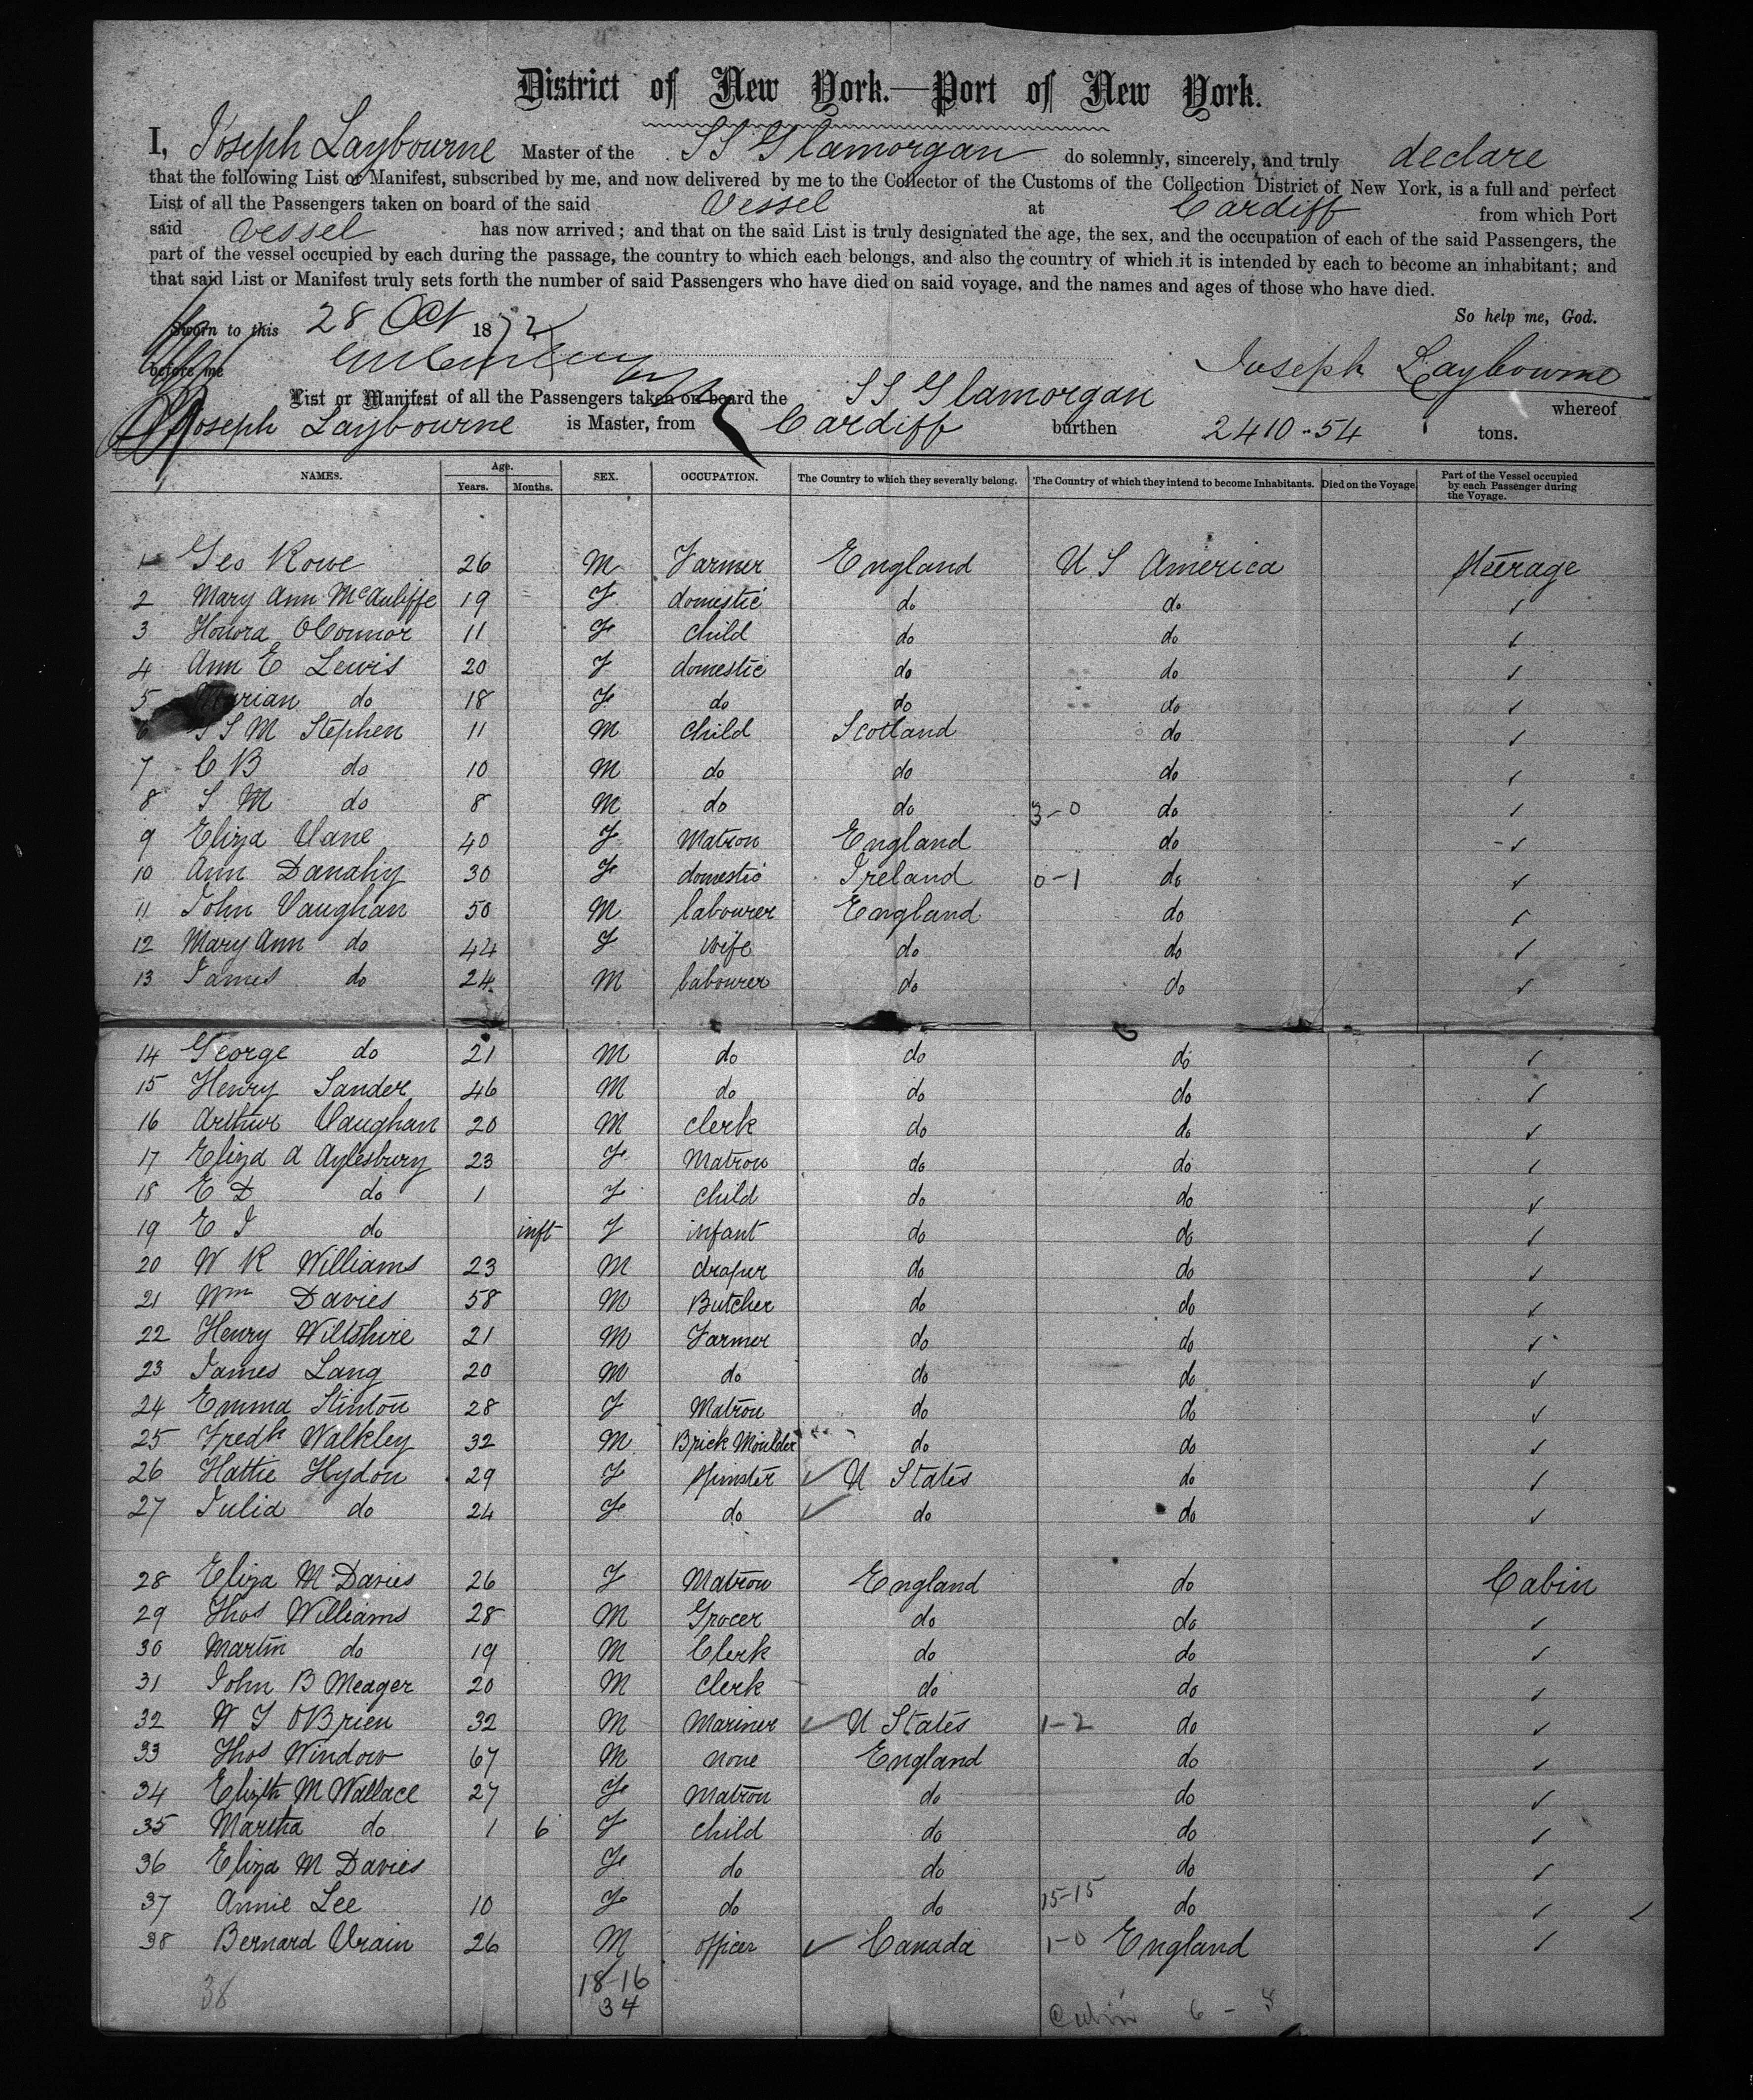 District of New York.—Port of New York.
I, Joseph Laybourne Master of the SS Glamorgan do solemnly, sincerely, and truly declare
that the following List or Manifest, subscribed by me, and now delivered by me to the Collector of the Customs of the Collection District of New York, is a full and perfect
List of all the Passengers taken on board of the said Vessel at Cardiff from which Port
said Vessel has now arrived; and that on the said List is truly designated the age, the sex, and the occupation of each of the said Passengers, the
part of the vessel occupied by each during the passage, the country to which each belongs, and also the country of which it is intended by each to become an inhabitant; and
that said List or Manifest truly sets forth the number of said Passengers who have died on said voyage, and the names and ages of those who have died.
So help me, God.
Sworn to this 28 Oct 1872
before me Joseph Laybourne
List or Manifest of all the Passengers taken on board the SS Glamorgan whereof
Joseph Laybourne is Master, from Cardiff burthen 2410.54 tons.
NAMES. Age. Years. Months. SEX. OCCUPATION. The Country to which they severally belong. The Country of which they intend to become Inhabitants. Died on the Voyage. Part of the Vessel occupied by each Passenger during the Voyage.
1 Geo Rowe 26 M Farmer England U S America Steerage
2 Mary Ann McAuliffe 19 F domestic do do ✓
3 Honora OConnor 11 F child do do ✓
4 Ann E Lewis 20 F domestic do do ✓
5 Marian do 18 F do do do ✓
6 S M Stephen 11 M child Scotland do ✓
7 C B do 10 M do do do ✓
8 S M do 8 M do do 3-0 do ✓
9 Eliza Vane 40 F Matron England do ✓
10 Ann Danahy 30 F domestic Ireland 0-1 do ✓
11 John Vaughan 50 M labourer England do ✓
12 Mary Ann do 44 F wife do do ✓
13 James do 24 M labourer do do ✓
14 George do 21 M do do do ✓
15 Henry Sander 46 M do do do ✓
16 Arthur Vaughan 20 M clerk do do ✓
17 Eliza A Aylesbury 23 F Matron do do ✓
18 E D do 1 F child do do ✓
19 E J do inft F infant do do ✓
20 W R Williams 23 M draper do do ✓
21 Wm Davies 58 M Butcher do do ✓
22 Henry Wiltshire 21 M Farmer do do ✓
23 James Lang 20 M do do do ✓
24 Emma Stinton 28 F Matron do do ✓
25 Fredk Walkley 32 M Brick Moulder do do ✓
26 Hattie Hydon 29 F spinster ✓ U States do ✓
27 Julia do 24 F do ✓ do do ✓
28 Eliza M Davies 26 F Matron England do Cabin
29 Thos Williams 28 M Grocer do do ✓
30 Martin do 19 M Clerk do do ✓
31 John B Meager 20 M Clerk do do ✓
32 W J OBrien 32 M Mariner ✓ U States 1-2 do ✓
33 Thos Window 67 M none England do ✓
34 Elizth M Wallace 27 F Matron do do ✓
35 Martha do 1 6 F child do do ✓
36 Eliza M Davies F do do do ✓
37 Annie Lee 10 F do do 15-15 do ✓
38 Bernard Vrain 26 M officer ✓ Canada 1-0 England ✓
38 18-16
34
Cabin 6 - 8